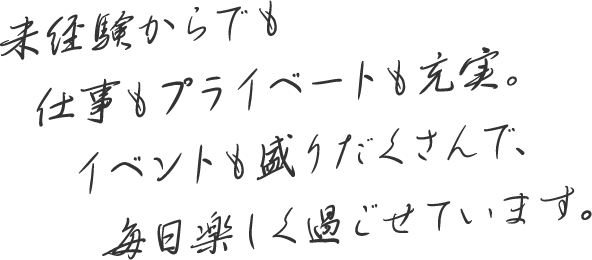 未経験からでも
仕事もプライベートも充実。
イベントも盛りだくさんで、
毎日楽しく過ごせています。